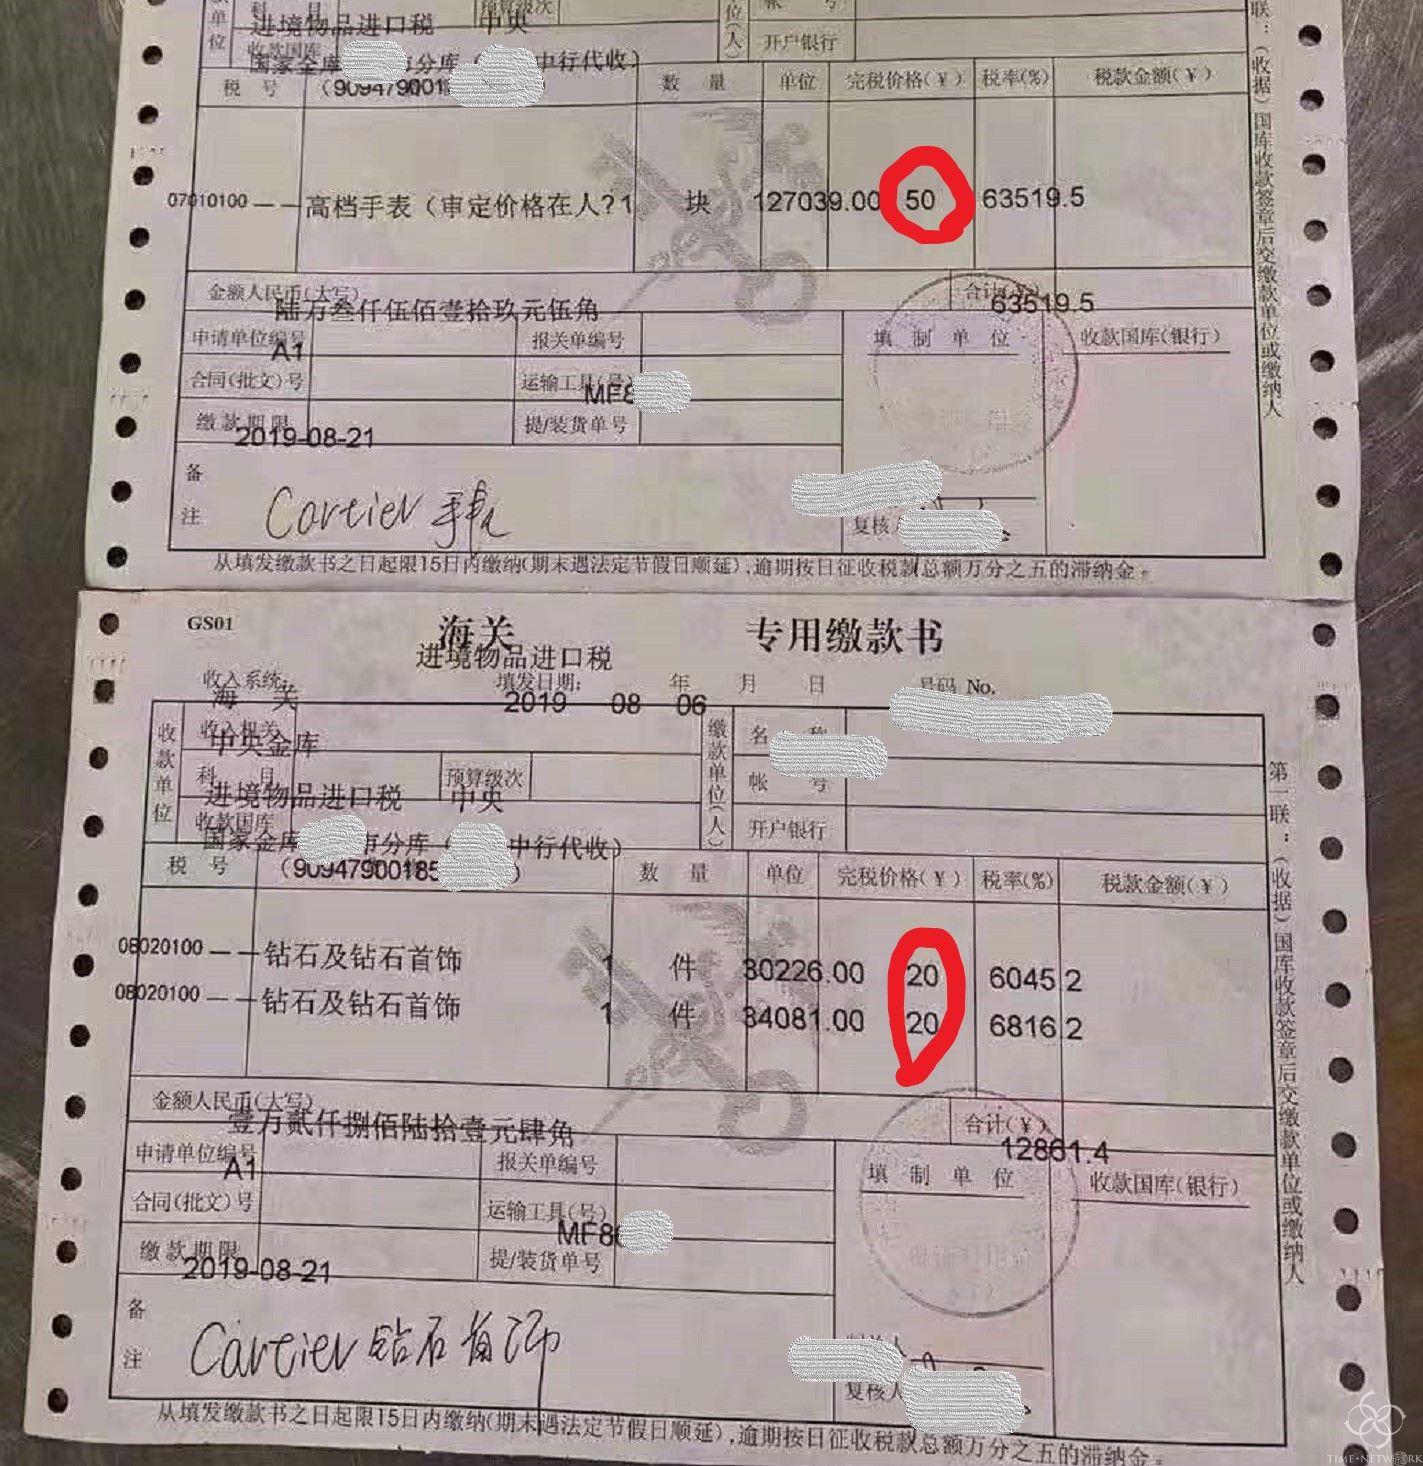 科 目 预算级次 单位(人) 帐 号
进境物品进口税 中央
收款国库 开户银行
国家金库 市分库( 中行代收)
税 号 (9094790018 数 量 单位 完税价格(¥) 税率(%) 税款金额(¥)
07010100 — — 高档手表(审定价格在人?1 块 127039.00 50 63519.5
金额人民币(大写) 合计(¥)
陆万叁仟伍佰壹拾玖元伍角 63519.5
申请单位编号 报关单编号 填 制 单 位 收款国库(银行)
A1
合同(批文)号 运输工具(号)
MF8
缴款期限 提/装货单号
2019-08-21
备
注 Cartier 手表
复核人
从填发缴款书之日起限15日内缴纳(期末遇法定节假日顺延),逾期按日征收税款总额万分之五的滞纳金。
联:(收据)国库收款签章后交缴款单位或缴纳人
GS01 海关 专用缴款书
进境物品进口税
收入系统: 填发日期: 年 月 日 号码 No.
海 关 2019 08 06
收款单位 收入机关 缴款单位(人) 名 称
中央金库
科 目 预算级次 帐 号
进境物品进口税 中央
收款国库 开户银行
国家金库 市分库( 中行代收)
税 号 (90947900185 ) 数 量 单位 完税价格(¥) 税率(%) 税款金额(¥)
08020100 — — 钻石及钻石首饰 1 件 30226.00 20 6045.2
08020100 — — 钻石及钻石首饰 1 件 34081.00 20 6816.2
金额人民币(大写) 合计(¥)
壹万贰仟捌佰陆拾壹元肆角 12861.4
申请单位编号 报关单编号 填 制 单 位 收款国库(银行)
A1
合同(批文)号 运输工具(号)
MF86
缴款期限 提/装货单号
2019-08-21
备
注 Cartier 钻石首饰
制单人
复核人
从填发缴款书之日起限15日内缴纳(期末遇法定节假日顺延),逾期按日征收税款总额万分之五的滞纳金。
第一联:(收据)国库收款签章后交缴款单位或缴纳人
TIME·NETWORK